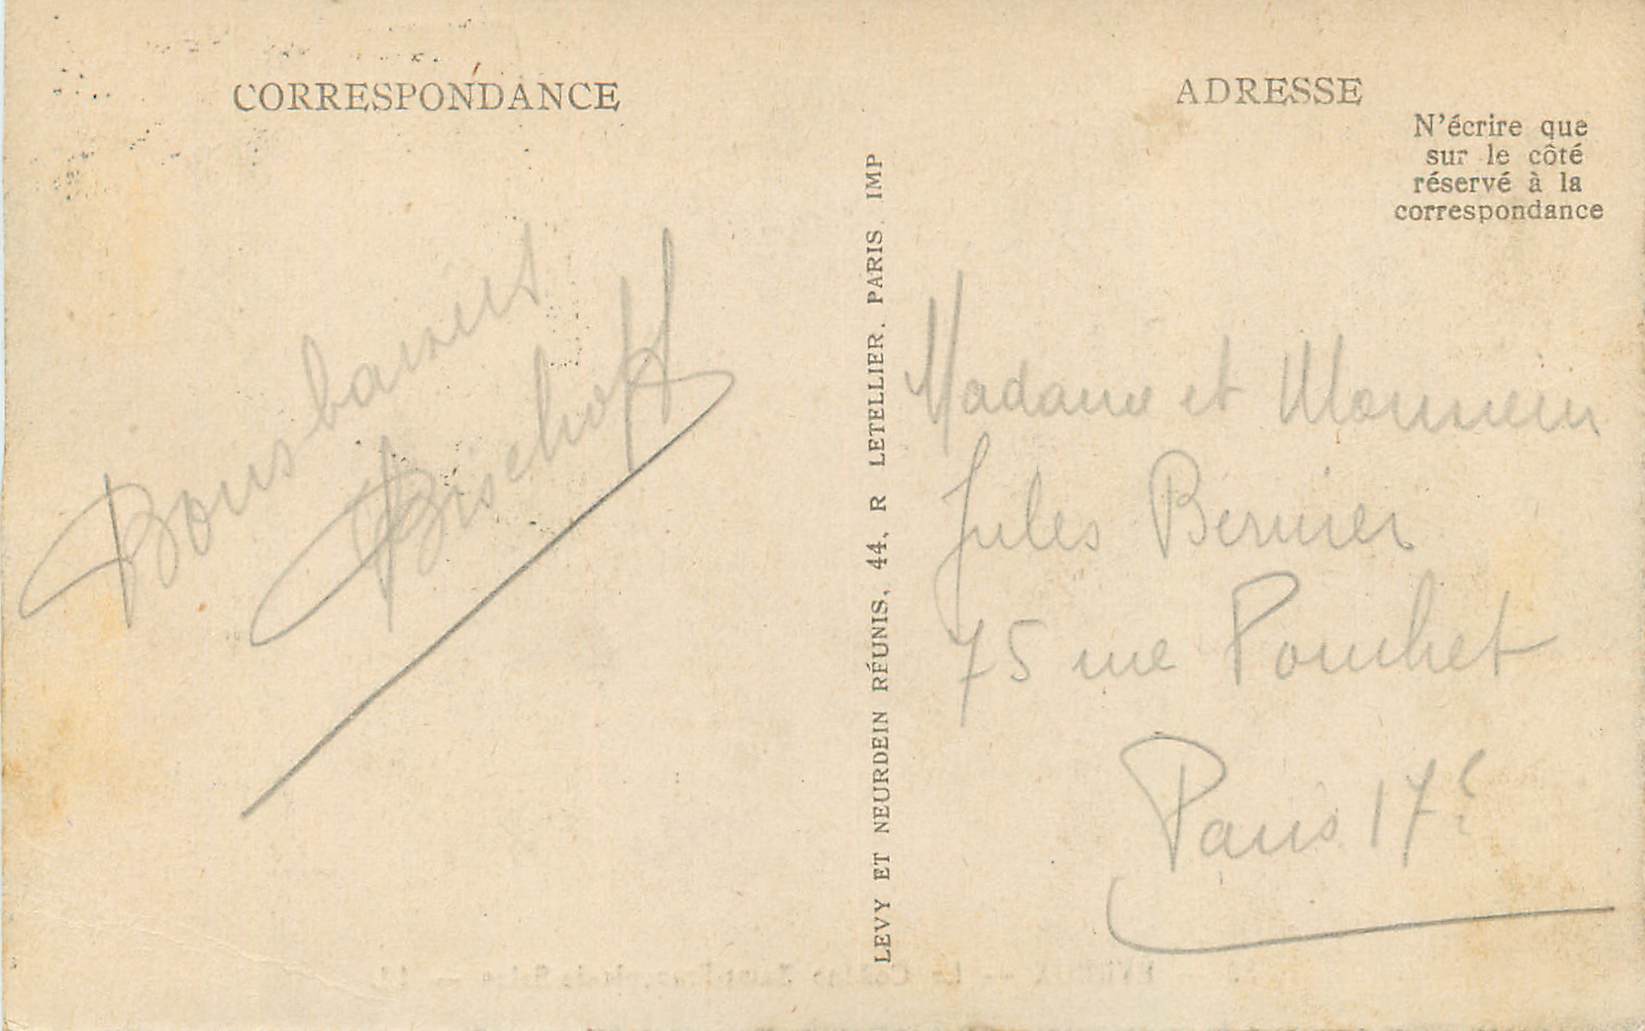 CORRESPONDANCE
Bons baisers
Bischoff
LEVY ET NEURDEIN RÉUNIS, 44, R LETELLIER, PARIS. IMP
ADRESSE
N'écrire que
sur le côté
réservé à la
correspondance
Madame et Monsieur
Jules Bernier
75 rue Pouchet
Paris 17e